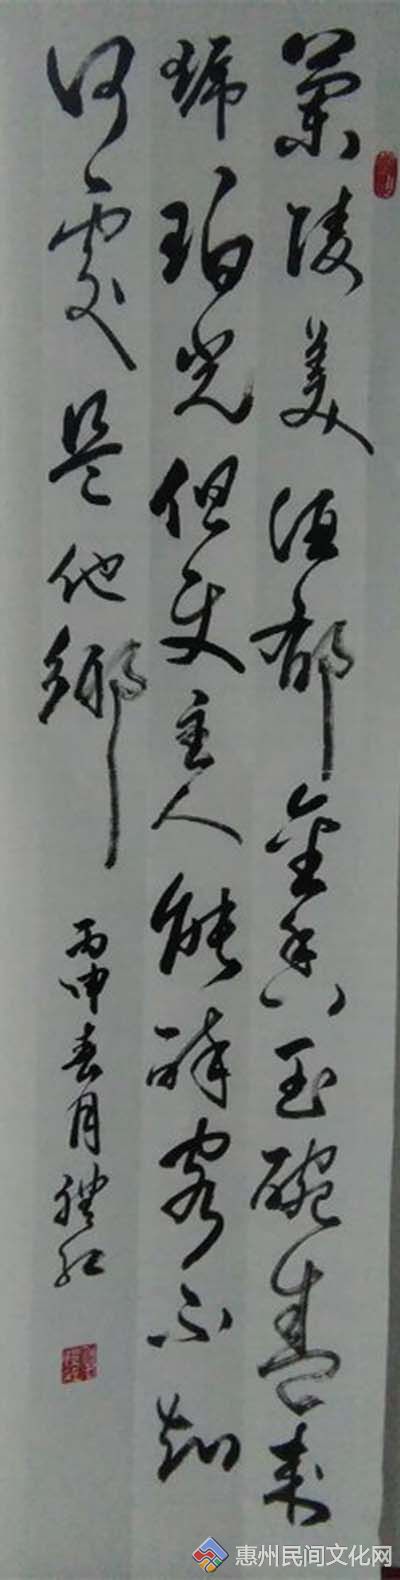 蘭陵美酒郁金香玉碗盛来
琥珀光但使主人能醉客不知
何處是他鄉
丙申春月红
惠州民间文化网